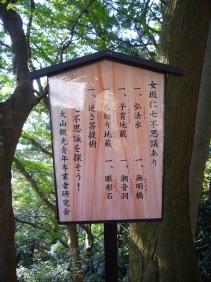 女坂に七不思議あり
一、弘法水
一、無明橋
一、子育地蔵
一、潮音洞
一、爪切り地蔵
一、眼形石
一、逆さ菩提樹
七不思議を探そう!
大山観光青年専業者研究会